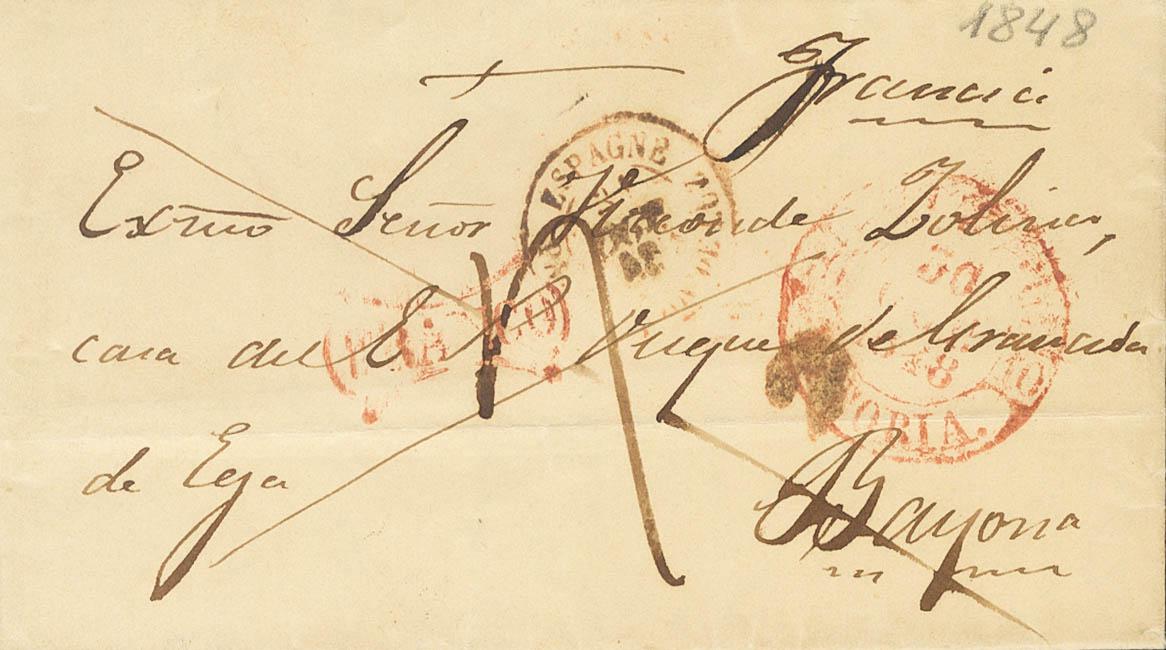 1848
Francia
Exmo Señor Vizconde Zolina,
casa del E. S. Duque de Granada
de Ega
Bayona
ESPAGNE
30
48
VITORIA.